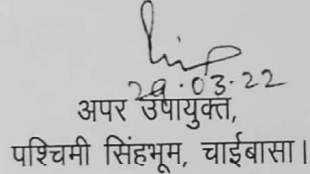 29.03.22
अपर उपायुक्त,
पश्चिमी सिंहभूम, चाईबासा।